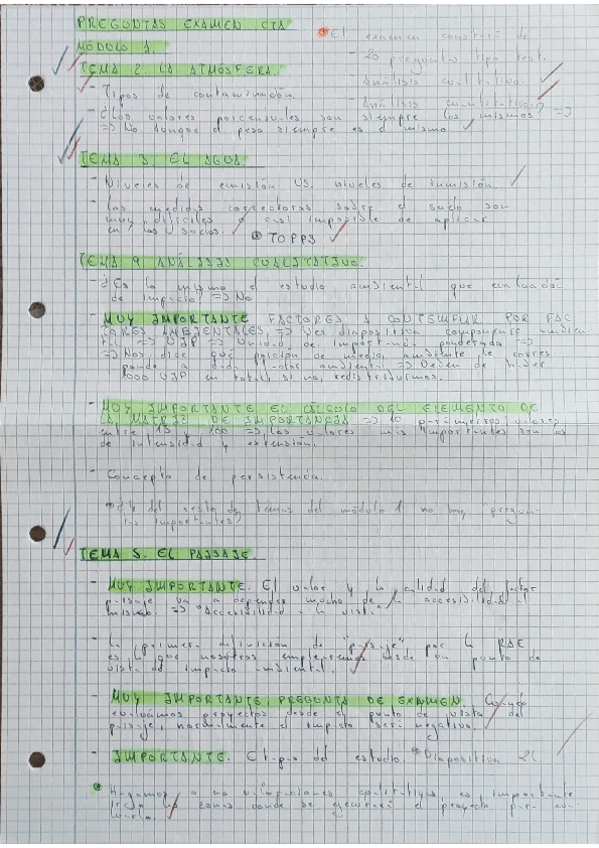 PREGUNTAS EXAMEN CTA
MÓDULO 1.
TEMA 2. LA ATMÓSFERA.
- Tipos de contaminación.
- ¿Los valores porcentuales son siempre los mismos? =>
=> No, aunque el peso siempre es el mismo
El examen constará de
- 20 preguntas tipo test.
- Análisis cualitativo
- Análisis cuantitativo
TEMA 3. EL AGUA.
- Niveles de emisión VS. niveles de inmisión
- Las medidas correctoras sobre el suelo son
muy difíciles o casi imposible de aplicar
TOPPS
ANÁLISIS CUALITATIVO.
- ¿Es lo mismo el estudio ambiental que evaluación
de impacto? => No
- MUY IMPORTANTE FACTORES A CONTEMPLAR POR FAC
TORES AMBIENTALES => Ver diapositiva componente ambien
tal => UIP => Unidad de importancia ponderada =>
=> Nos dice que porción de medio ambiente le corres
ponde a cada factor ambiental => Deben de haber
1000 UIP en total, si no, redistribuimos.
- MUY IMPORTANTE EL CÁLCULO DEL ELEMENTO DE
LA MATRIZ DE IMPORTANCIA => 10 parámetros, valores
entre 13 y 100 => Los valores más importantes son los
de intensidad y extensión.
- Concepto de persistencia.
del resto de temas del módulo 1 no hay "pregun
tas importantes"
TEMA 5. EL PAISAJE.
- MUY IMPORTANTE. El valor y la calidad del factor
paisaje va a depender mucho de la accesibilidad al
mismo. => Accesibilidad a la vista.
- La primera definición de "paisaje" por la RAE
es la que nosotros emplearemos desde un punto de
vista del impacto ambiental.
- MUY IMPORTANTE, PREGUNTA DE EXAMEN. Cuando
evaluamos proyectos desde el punto de vista del
paisaje, normalmente el impacto será negativo.
- IMPORTANTE. Etapas del estudio. Diapositiva 21
Hagamos o no valoraciones cualitativas, es importante
las zonas donde se ejecutará el proyecto para